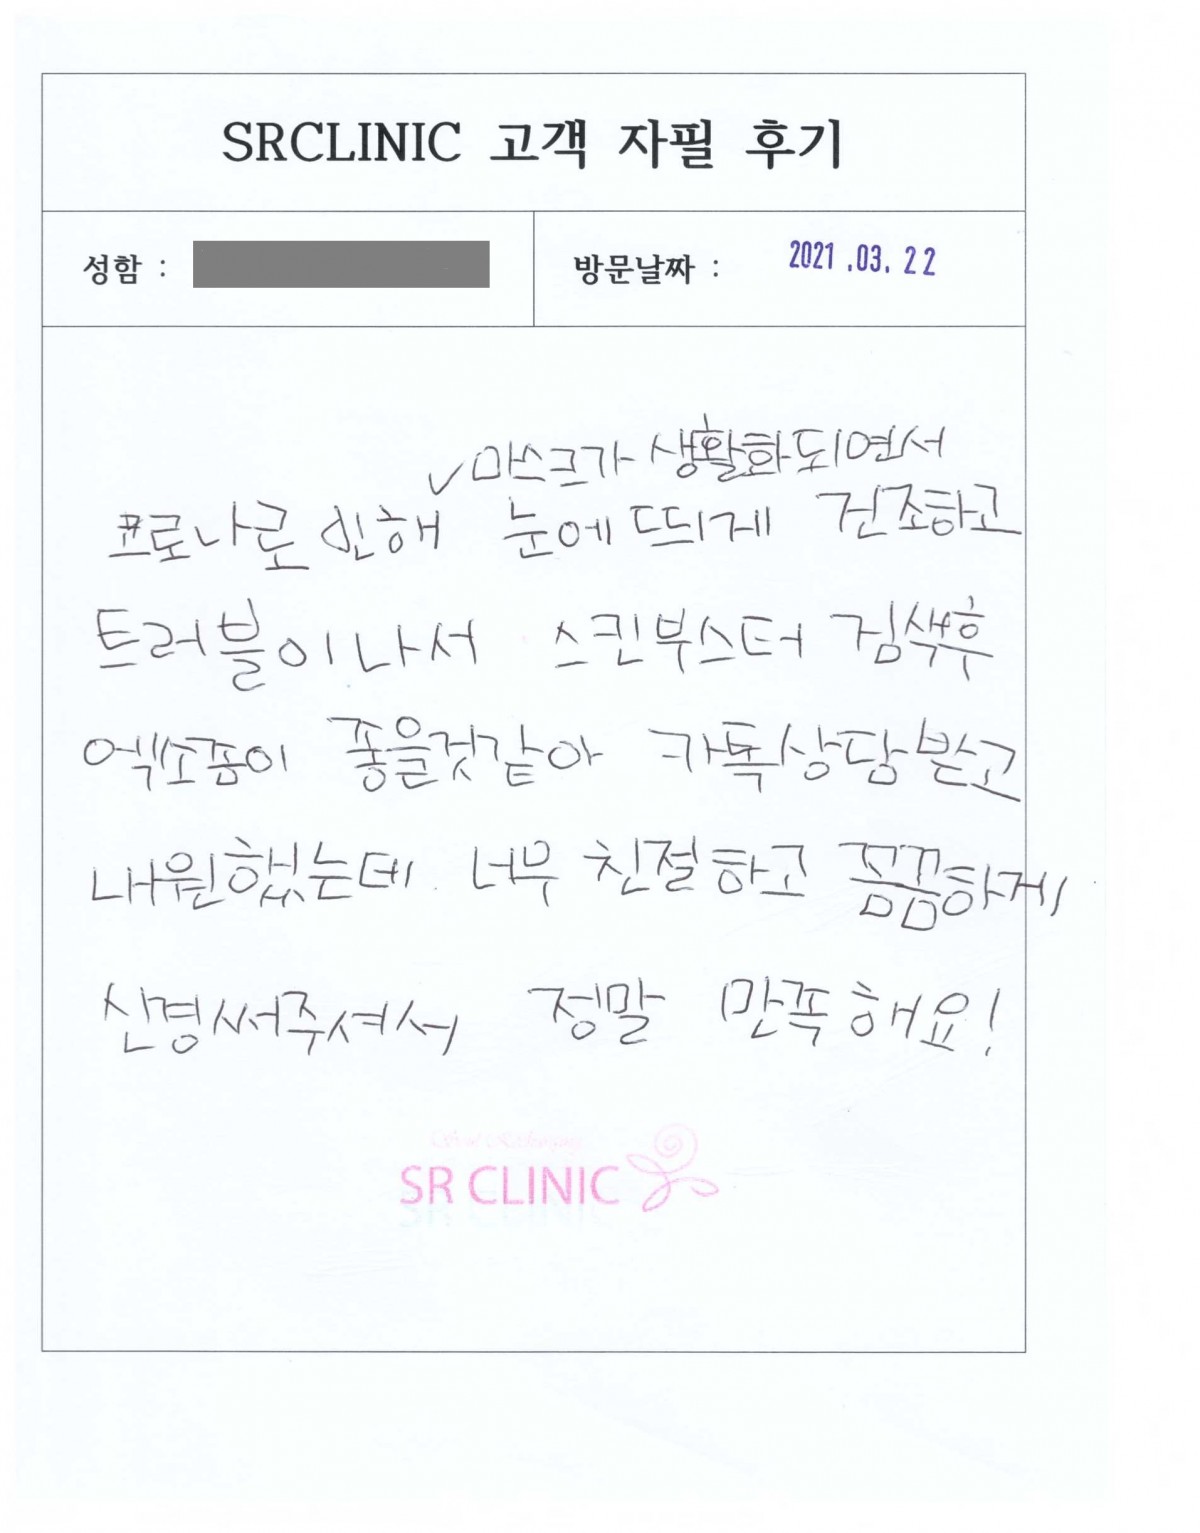 SRCLINIC 고객 자필 후기
성함 :
방문날짜 : 2021.03.22
✓마스크가 생활화되면서
코로나로 인해 눈에 띄게 건조하고
트러블이나서 스킨부스터 검색후
엑소좀이 좋을것같아 카톡상담받고
내원했는데 너무 친절하고 꼼꼼하게
신경써주셔서 정말 만족해요!
SR CLINIC